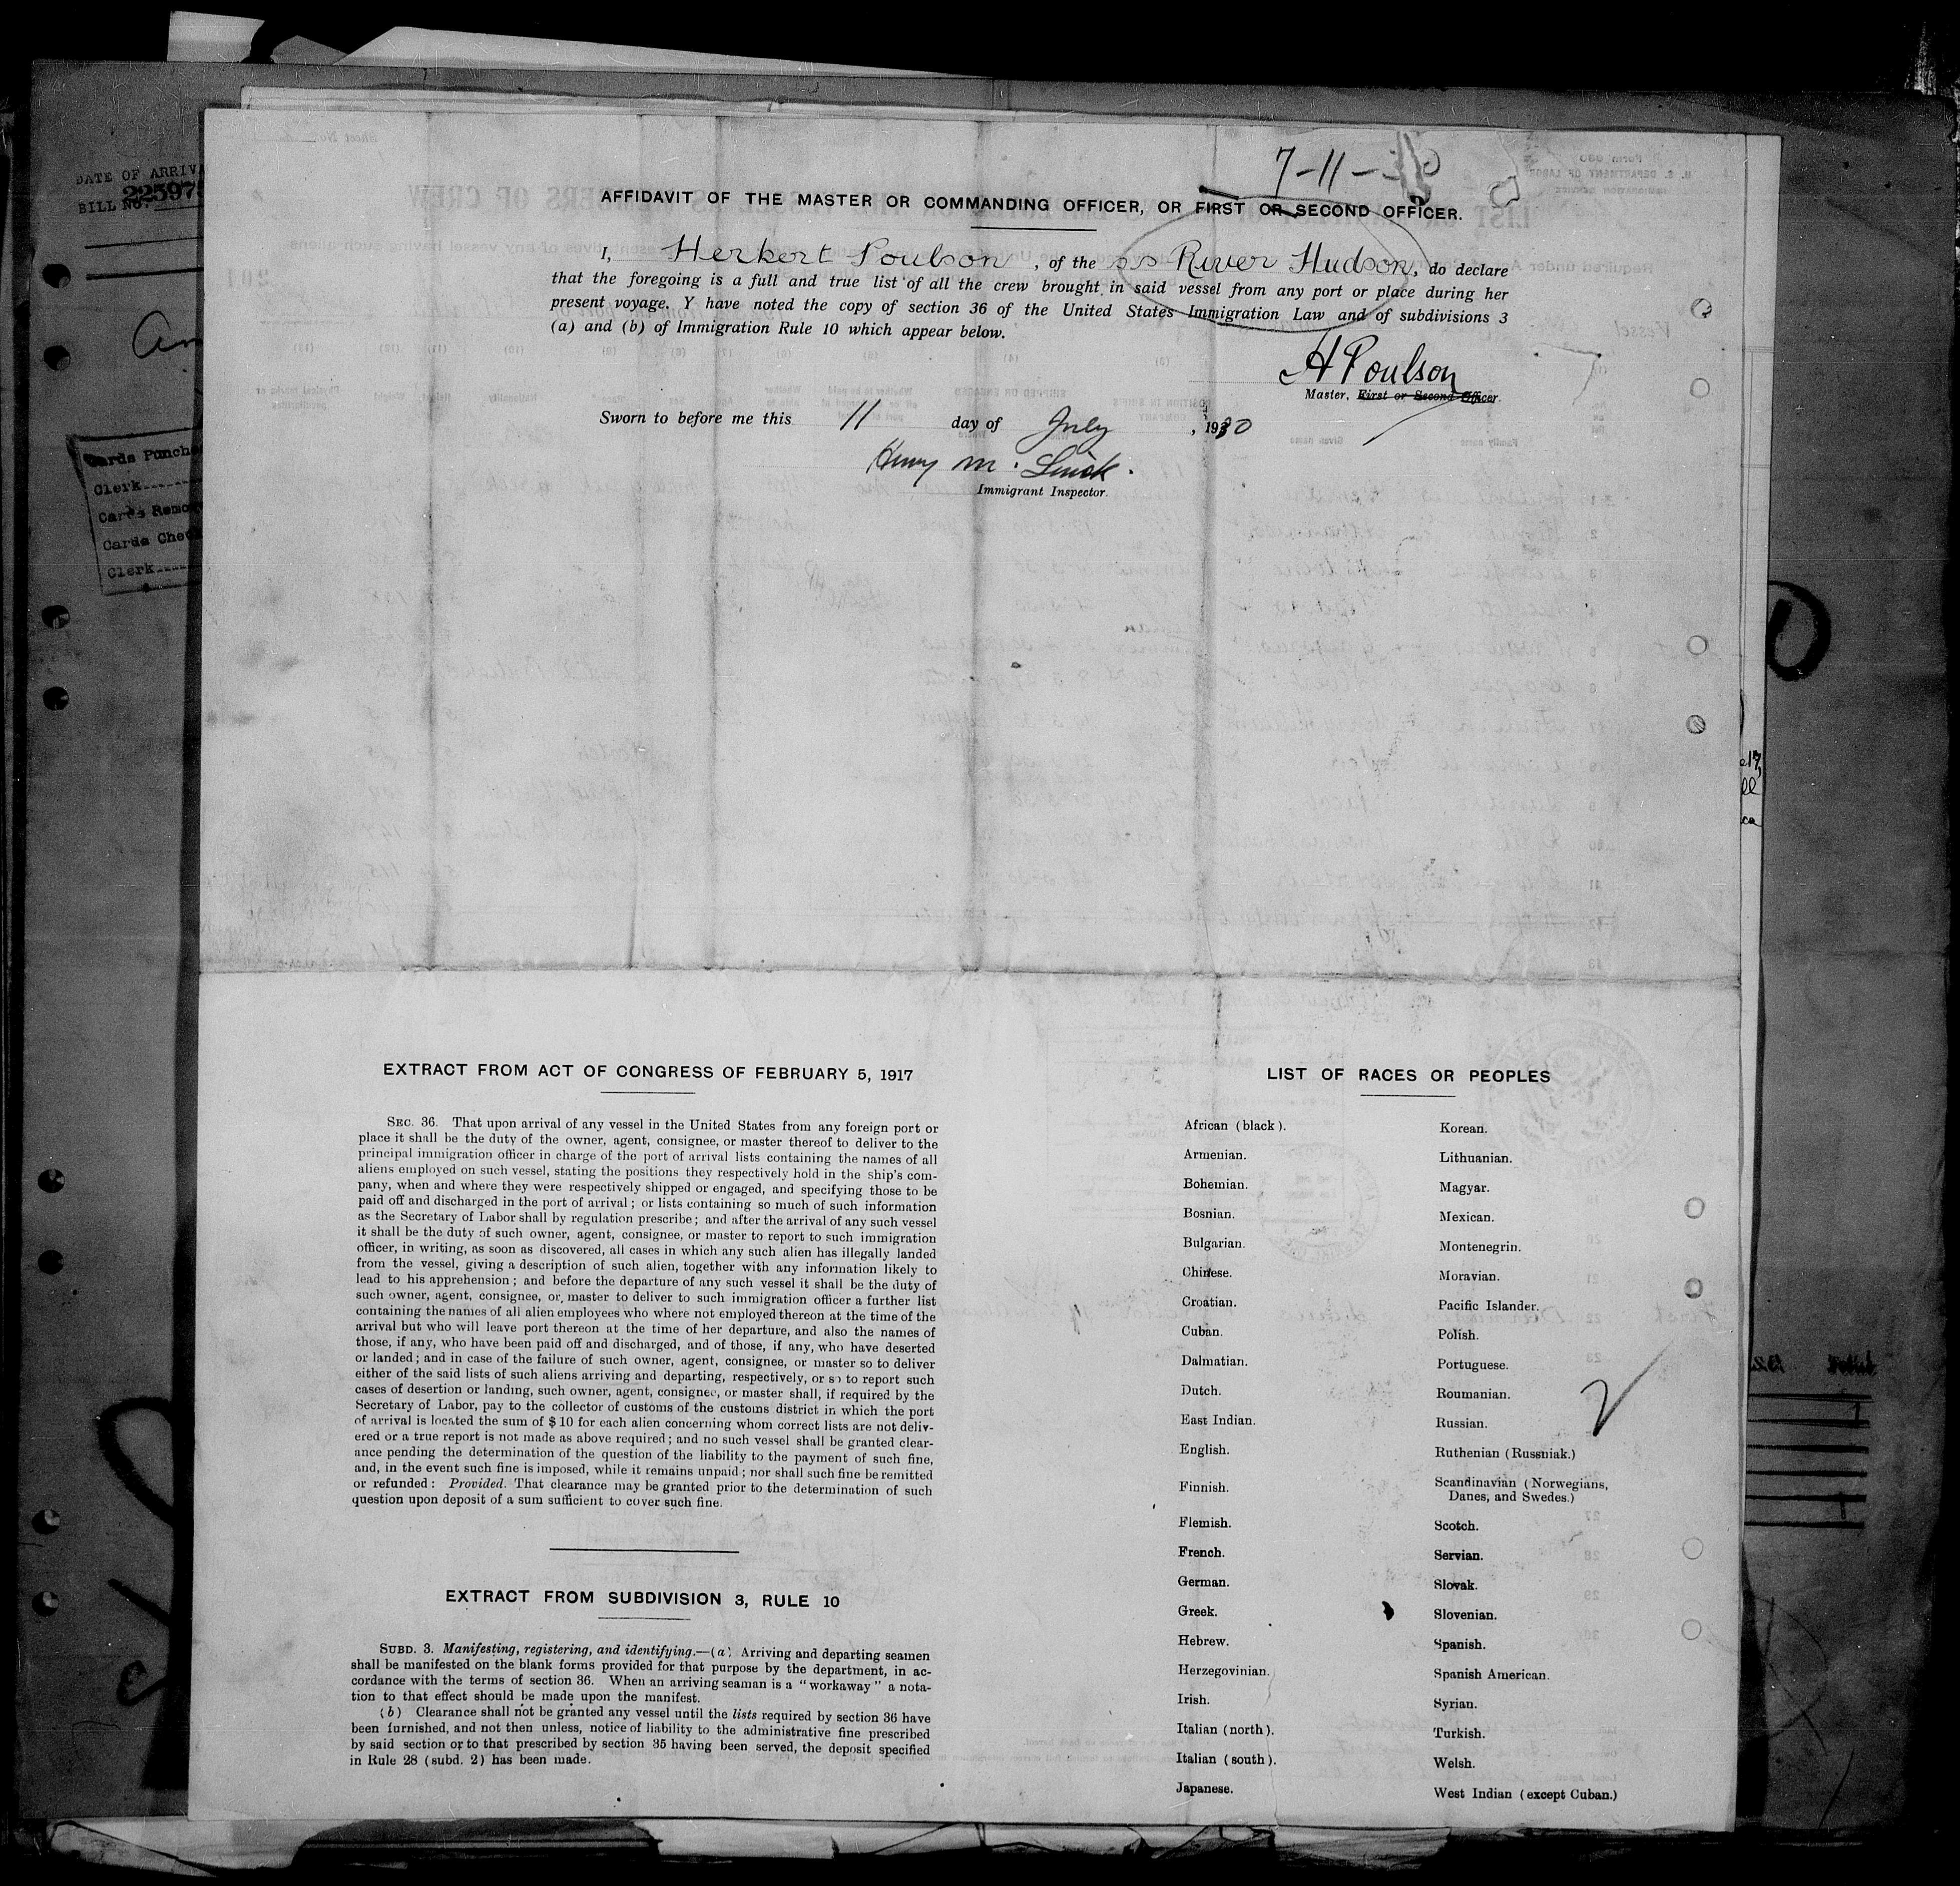 7-11-30
AFFIDAVIT OF THE MASTER OR COMMANDING OFFICER, OR FIRST OR SECOND OFFICER.
I, Herbert Poulson, of the ss River Hudson, do declare
that the foregoing is a full and true list of all the crew brought in said vessel from any port or place during her
present voyage. Y have noted the copy of section 36 of the United States Immigration Law and of subdivisions 3
(a) and (b) of Immigration Rule 10 which appear below.
H Poulson
Master, First or Second Officer.
Sworn to before me this 11 day of July, 1930
Henry M.
Immigrant Inspector.
DATE OF ARRIVA
BILL NO.
Cards Punche
Clerk
Cards Remo
Cards Chec
Clerk
EXTRACT FROM ACT OF CONGRESS OF FEBRUARY 5, 1917
SEC. 36. That upon arrival of any vessel in the United States from any foreign port or
place it shall be the duty of the owner, agent, consignee, or master thereof to deliver to the
principal immigration officer in charge of the port of arrival lists containing the names of all
aliens employed on such vessel, stating the positions they respectively hold in the ship's com-
pany, when and where they were respectively shipped or engaged, and specifying those to be
paid off and discharged in the port of arrival; or lists containing so much of such information
as the Secretary of Labor shall by regulation prescribe; and after the arrival of any such vessel
it shall be the duty of such owner, agent, consignee, or master to report to such immigration
officer, in writing, as soon as discovered, all cases in which any such alien has illegally landed
from the vessel, giving a description of such alien, together with any information likely to
lead to his apprehension; and before the departure of any such vessel it shall be the duty of
such owner, agent, consignee, or, master to deliver to such immigration officer a further list
containing the names of all alien employees who where not employed thereon at the time of the
arrival but who will leave port thereon at the time of her departure, and also the names of
those, if any, who have been paid off and discharged, and of those, if any, who have deserted
or landed; and in case of the failure of such owner, agent, consignee, or master so to deliver
either of the said lists of such aliens arriving and departing, respectively, or so to report such
cases of desertion or landing, such owner, agent, consignee, or master shall, if required by the
Secretary of Labor, pay to the collector of customs of the customs district in which the port
of arrival is located the sum of $10 for each alien concerning whom correct lists are not deliv-
ered or a true report is not made as above required; and no such vessel shall be granted clear-
ance pending the determination of the question of the liability to the payment of such fine,
and, in the event such fine is imposed, while it remains unpaid; nor shall such fine be remitted
or refunded: Provided. That clearance may be granted prior to the determination of such
question upon deposit of a sum sufficient to cover such fine.
EXTRACT FROM SUBDIVISION 3, RULE 10
SUBD. 3. Manifesting, registering, and identifying.—(a) Arriving and departing seamen
shall be manifested on the blank forms provided for that purpose by the department, in ac-
cordance with the terms of section 36. When an arriving seaman is a "workaway" a nota-
tion to that effect should be made upon the manifest.
(b) Clearance shall not be granted any vessel until the lists required by section 36 have
been furnished, and not then unless, notice of liability to the administrative fine prescribed
by said section or to that prescribed by section 35 having been served, the deposit specified
in Rule 28 (subd. 2) has been made.
LIST OF RACES OR PEOPLES
African (black).
Armenian.
Bohemian.
Bosnian.
Bulgarian.
Chinese.
Croatian.
Cuban.
Dalmatian.
Dutch.
East Indian.
English.
Finnish.
Flemish.
French.
German.
Greek.
Hebrew.
Herzegovinian.
Irish.
Italian (north).
Italian (south).
Japanese.
Korean.
Lithuanian.
Magyar.
Mexican.
Montenegrin.
Moravian.
Pacific Islander.
Polish.
Portuguese.
Roumanian.
Russian.
Ruthenian (Russniak.)
Scandinavian (Norwegians,
Danes, and Swedes.)
Scotch.
Servian.
Slovak.
Slovenian.
Spanish.
Spanish American.
Syrian.
Turkish.
Welsh.
West Indian (except Cuban.)